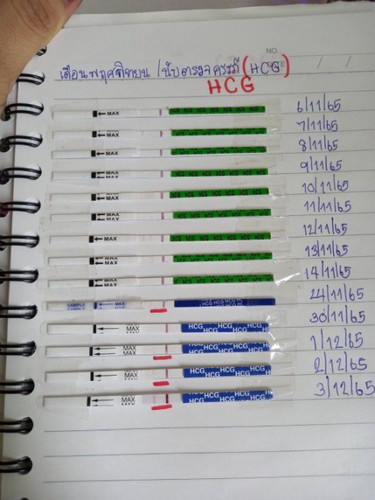 NO.
เดือนพฤศจิกายน / นับตรวจครรภ์ (HCG) / /
HCG
MAX 6/11/65
MAX 7/11/65
MAX 8/11/65
MAX 9/11/65
MAX 10/11/65
MAX 11/11/65
MAX 12/11/65
MAX 13/11/65
MAX 14/11/65
MAX HCG HCG HCG 24/11/65
MAX HCG HCG HCG HCG HCG 30/11/65
MAX HCG HCG HCG HCG HCG 1/12/65
MAX HCG HCG HCG HCG HCG 2/12/65
MAX HCG HCG HCG HCG HCG 3/12/65